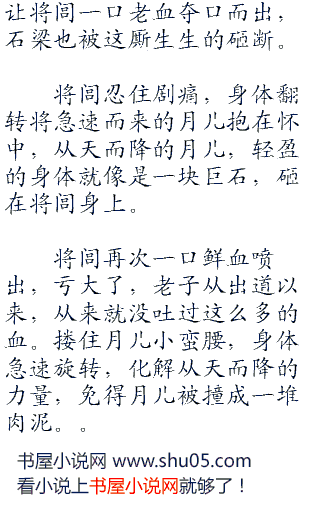 让将闾一口老血夺口而出，
石梁也被这厮生生的砸断。
将闾忍住剧痛，身体翻
转将急速而来的月儿抱在怀
中，从天而降的月儿，轻盈
的身体就像是一块巨石，砸
在将闾身上。
将闾再次一口鲜血喷
出，亏大了，老子从出道以
来，从来就没吐过这么多的
血。搂住月儿小蛮腰，身体
急速旋转，化解从天而降的
力量，免得月儿被撞成一堆
肉泥。。
书屋小说网 www.shu05.com
看小说上书屋小说网就够了！